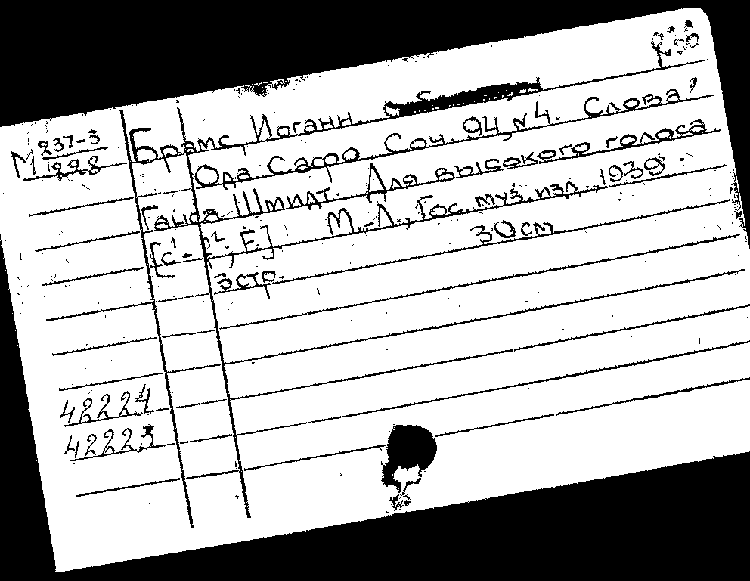 М 237-3
228
Брамс, Иоганн.
Ода Сафо. Соч. 94, №4. Слова
Ганса Шмидт. Для высокого голоса
[c¹ - g²; E]. М.-Л., Гос. муз. изд., 1939.
3 стр. 30 см
42224
42223